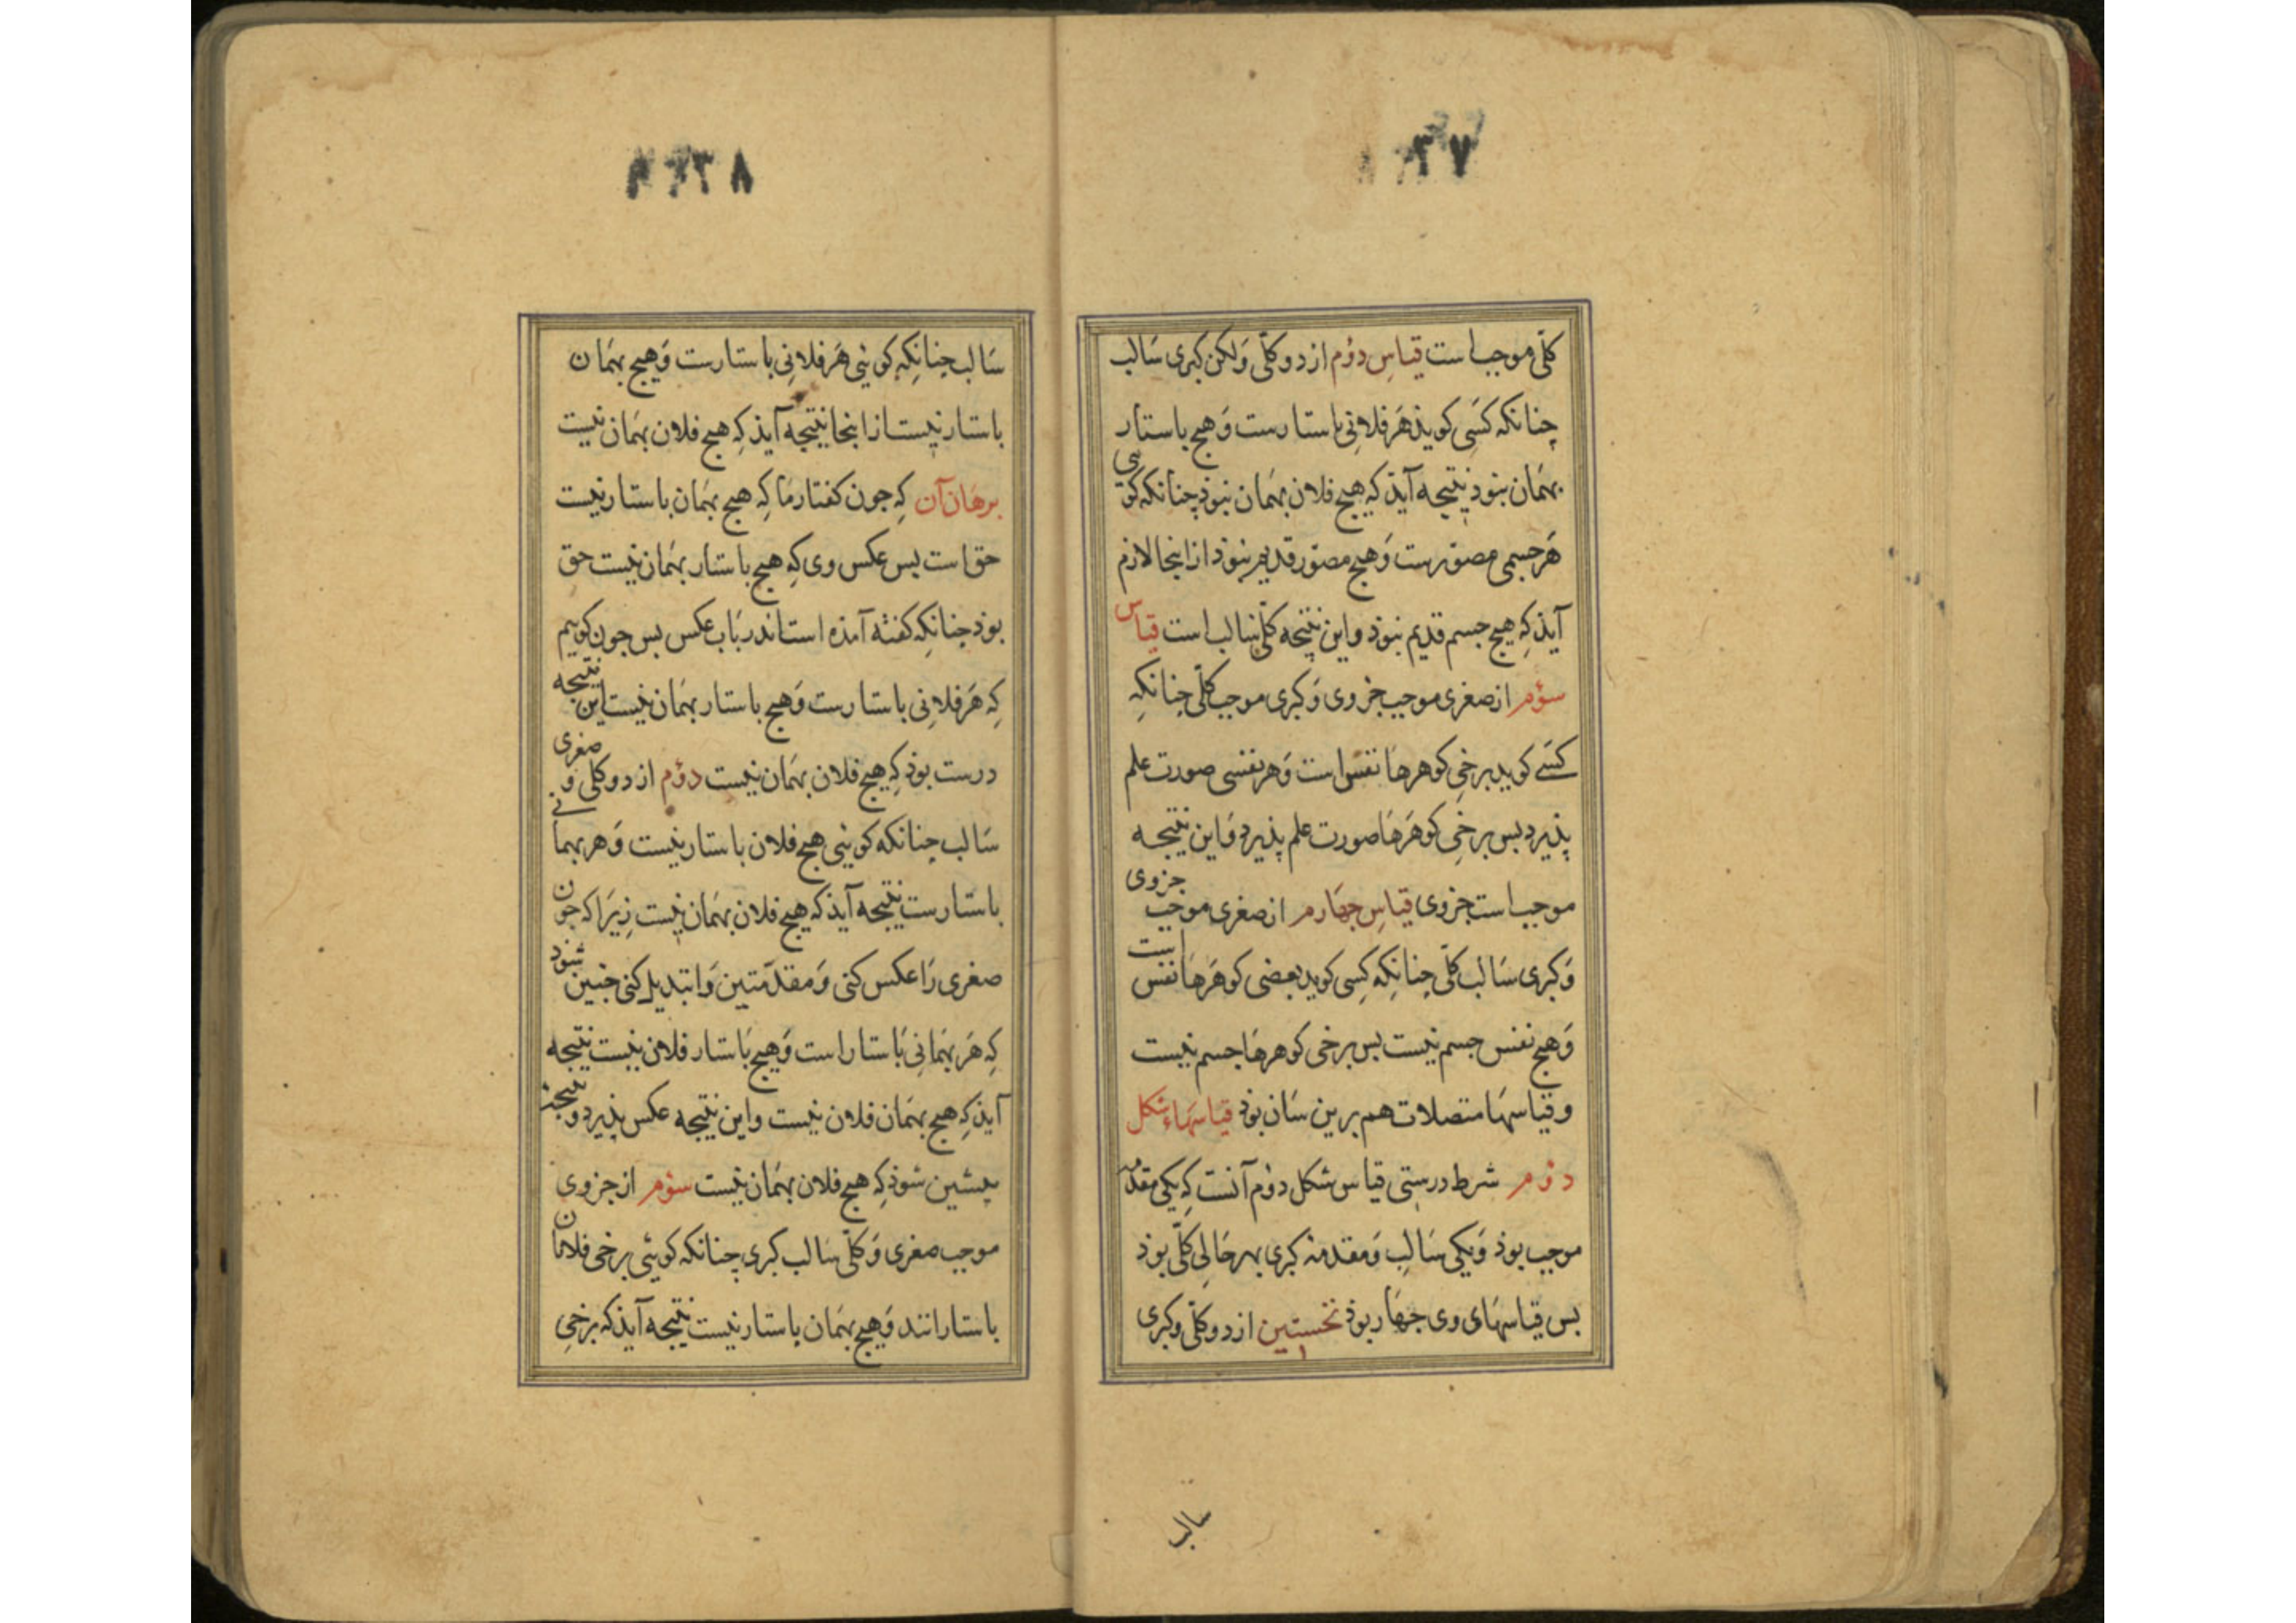 ۳۷
کلّی موجب است قیاسِ دوُم از دو کلّی وَلکن کبری سَالب
چنانکه کَسَی کویذ هَر فلانی باستارست وَ هیچ باستار
بهمَان نبوذ نتیجه آیذ کِه هیچ فلان بهمَان نبوذ چنانکه کوئی
هَر جسمی مصوّرست وَ هیچ مصوّر قدیم نبوذ از اینجا لازم
آیذ کِه هیچ جسم قدیم نبوذ و این نتیجه کلّی سالب است قیاس
سوُم از صغری موجب جزوی وَ کبری موجب کلّی جنانکِه
کسَے کوید برخی کوهرهَا نفس است وَ هر نفسی صورت علم
پذیرد بس برخِی کوهَرهَا صورت علم پذیرد وَ این نتیجه
موجب است جزوی قیاسِ جهَارم از صغری موجب جزوی
وَ کبری سَالب کلّی جنانِکه کِسی کوید بعضی کوهَرهَا نفس است
وَ هیچ نفس جسم نیست بس برخی کوهرهَا جسم نیست
و قیاسهَا متصلات هم برین سَان بوذ قیاسهَاءِ شکل
دوُم شرط درستی قیاس شکل دوُم آنست کِه یکی مقدّمه
موجب بوذ وَ یکی سَالِب وَ مقدمهٔ کبری بهر حَالِی کلّی بوذ
بس قیاسهَای وی جهَار بوذ نخستین از دو کلّی و کبری
سالب
۳۸
سَالب جنانکِه کوئی هَر فلانی باستارست وَ هیچ بهمَان
باستار نیست از اینجا نتیجه آیذ کِه هیچ فلان بهمَان نیست
برهَان آن کِه جون کفتار مَا کِه هیچ بهمَان باستار نیست
حق است بس عکس وی کِه هیچ باستار بهمَان نیست حق
بوذ جنانکِه کفته آمذه است اندر بَاب عکس بس جون کوییم
کِه هَر فلانِی باستارست وَ هیچ باستار بهمَان نیست این نتیجه
درست بوذ کِه هیچ فلان بهمَان نیست دوُم از دو کلی و صغری
سَالب جنانکه کوئی هیچ فلان باستار نیست وَ هر بهمانے
باستارست نتیجه آیذ که هیچ فلان بهمَان نیست زیَرا که جون
صغری رَا عکس کنی وَ مقدّمتین وَا تبدیل کنی جنین شوذ
کِه هَر بهمَانِی بَاستار است وَ هیچ بَاستار فلان نیست نتیجه
آیذ کِه هیچ بهمَان فلان نیست و این نتیجه عکس پذیرد و نتیجهٔ
پیشین شوذ کِه هیچ فلان بهمَان نیست سوُم از جزوی
موجب صغری وَ کلّی سَالب کبری چنانکه کوئی برخی فلانان
باستارانند وَ هیچ بهمَان باستار نیست نتیجه آیذ که برخِی